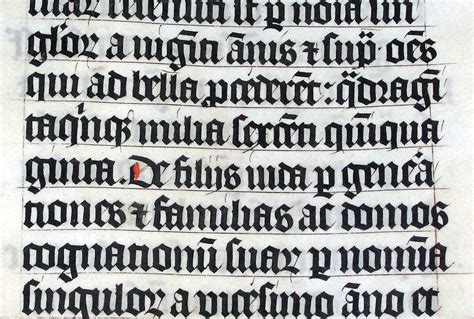 gloꝝ a uigīti ānis ⁊ sup̄. oēs
qui ad bella ꝓcederēt: q̈dragī
taqͥnqꝫ milia sexcēti quīqua
ginta. De filijs iuda ꝑ geneᷓa
tiones ⁊ familias ac domos
cognationū suaꝝ ꝑ nomīa
singuloꝝ a vicesimo āno et